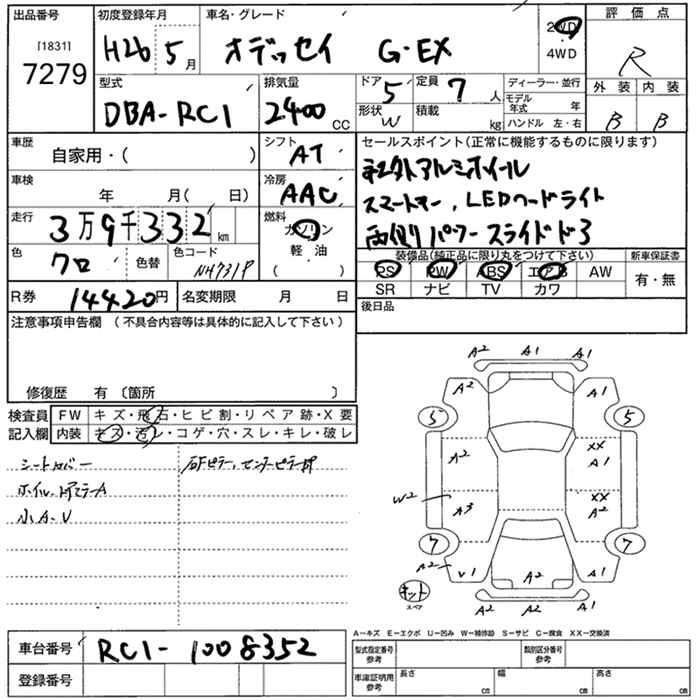 出品番号
[1831]
7279
初度登録年月
H26 5月
車名・グレード
オデッセイ G・EX
2WD
4WD
評価点
R
外装 内装
B B
型式
DBA-RC1
排気量
2400 CC
ドア 5
形状 W
定員 7 人
積載 kg
ディーラー・並行
モデル年式 年
ハンドル 左・右
車歴
自家用・( )
シフト
AT
車検
年 月( 日)
冷房
AAC
走行
3万9千332 km
燃料
ガソリン
軽油
( )
色
クロ
色替
色コード
NH731P
R券 14420円
名変期限 月 日
セールスポイント(正常に機能するものに限ります)
社外アルミホイル
スマートキー, LEDヘードライト
両側パワースライドドア
装備品(純正品に限り丸をつけて下さい)
PS PW ABS エアB AW
SR ナビ TV カワ
新車保証書
有・無
後日品
注意事項申告欄 (不具合内容等は具体的に記入して下さい)
修復歴 有 〔箇所 〕
検査員
記入欄
FW キズ・飛石・ヒビ割・リペア跡・X要
内装 キズ・汚レ・コゲ・穴・スレ・キレ・破レ
シートカバー
小A.V
A2 A1 A1
A2 A1
5 5
A2 XX A1
W2 A3 XX A2
7 7
A2 V1 A2 A1
A2 A2
キット
スペア
A-キズ E-エクボ U-凹み W-補修跡 S-サビ C-腐食 XX-交換済
車台番号 RC1-1008352
登録番号
型式指定番号
参考
類別区分番号
参考
車庫証明用
参考
長さ cm
幅 cm
高さ cm